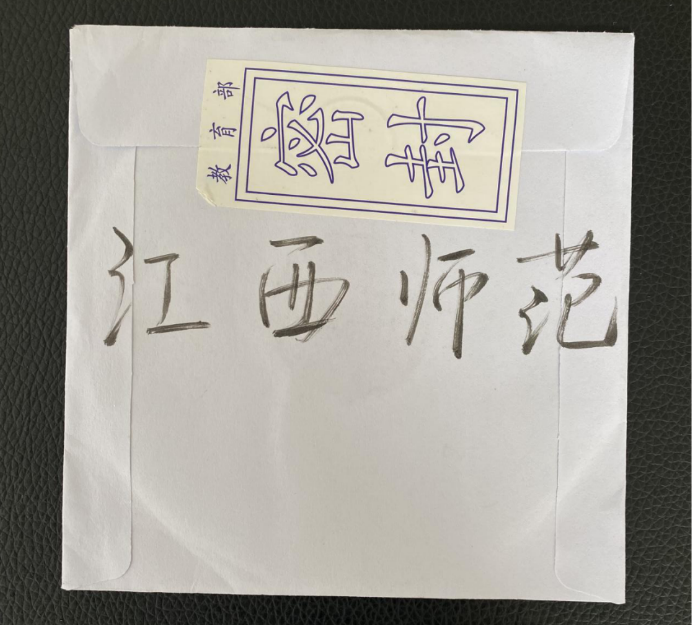 教育部
密封
江西师范